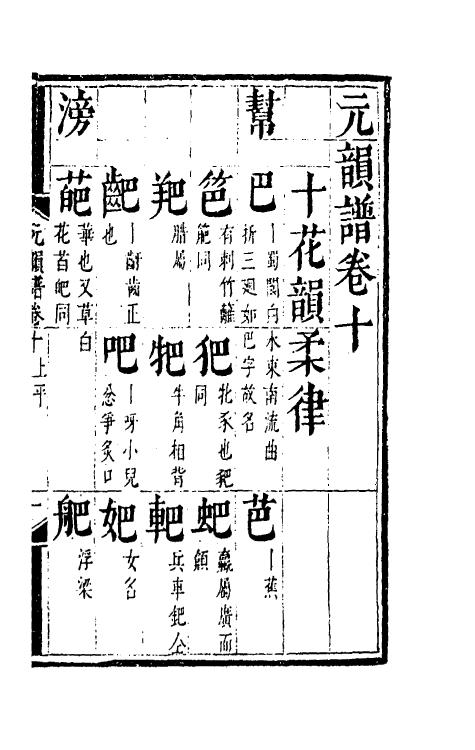 元韻譜卷十
十花韻柔律
幫
巴 丨蜀閬白水東南流曲折三廻如巴字故名
芭 丨蕉
笆 有刺竹籬䈈同
豝 牝豕也䝛同
蚆 蠃屬廣而頯
羓 腊屬
䶕 牛角相背
䡊 兵車鈀仝
齙 丨齖齒正也
吧 丨呀小兒忿爭炙口
妑 女名
滂
葩 華也又草白花首皅同
舥 浮梁
元韻譜卷十上平
一